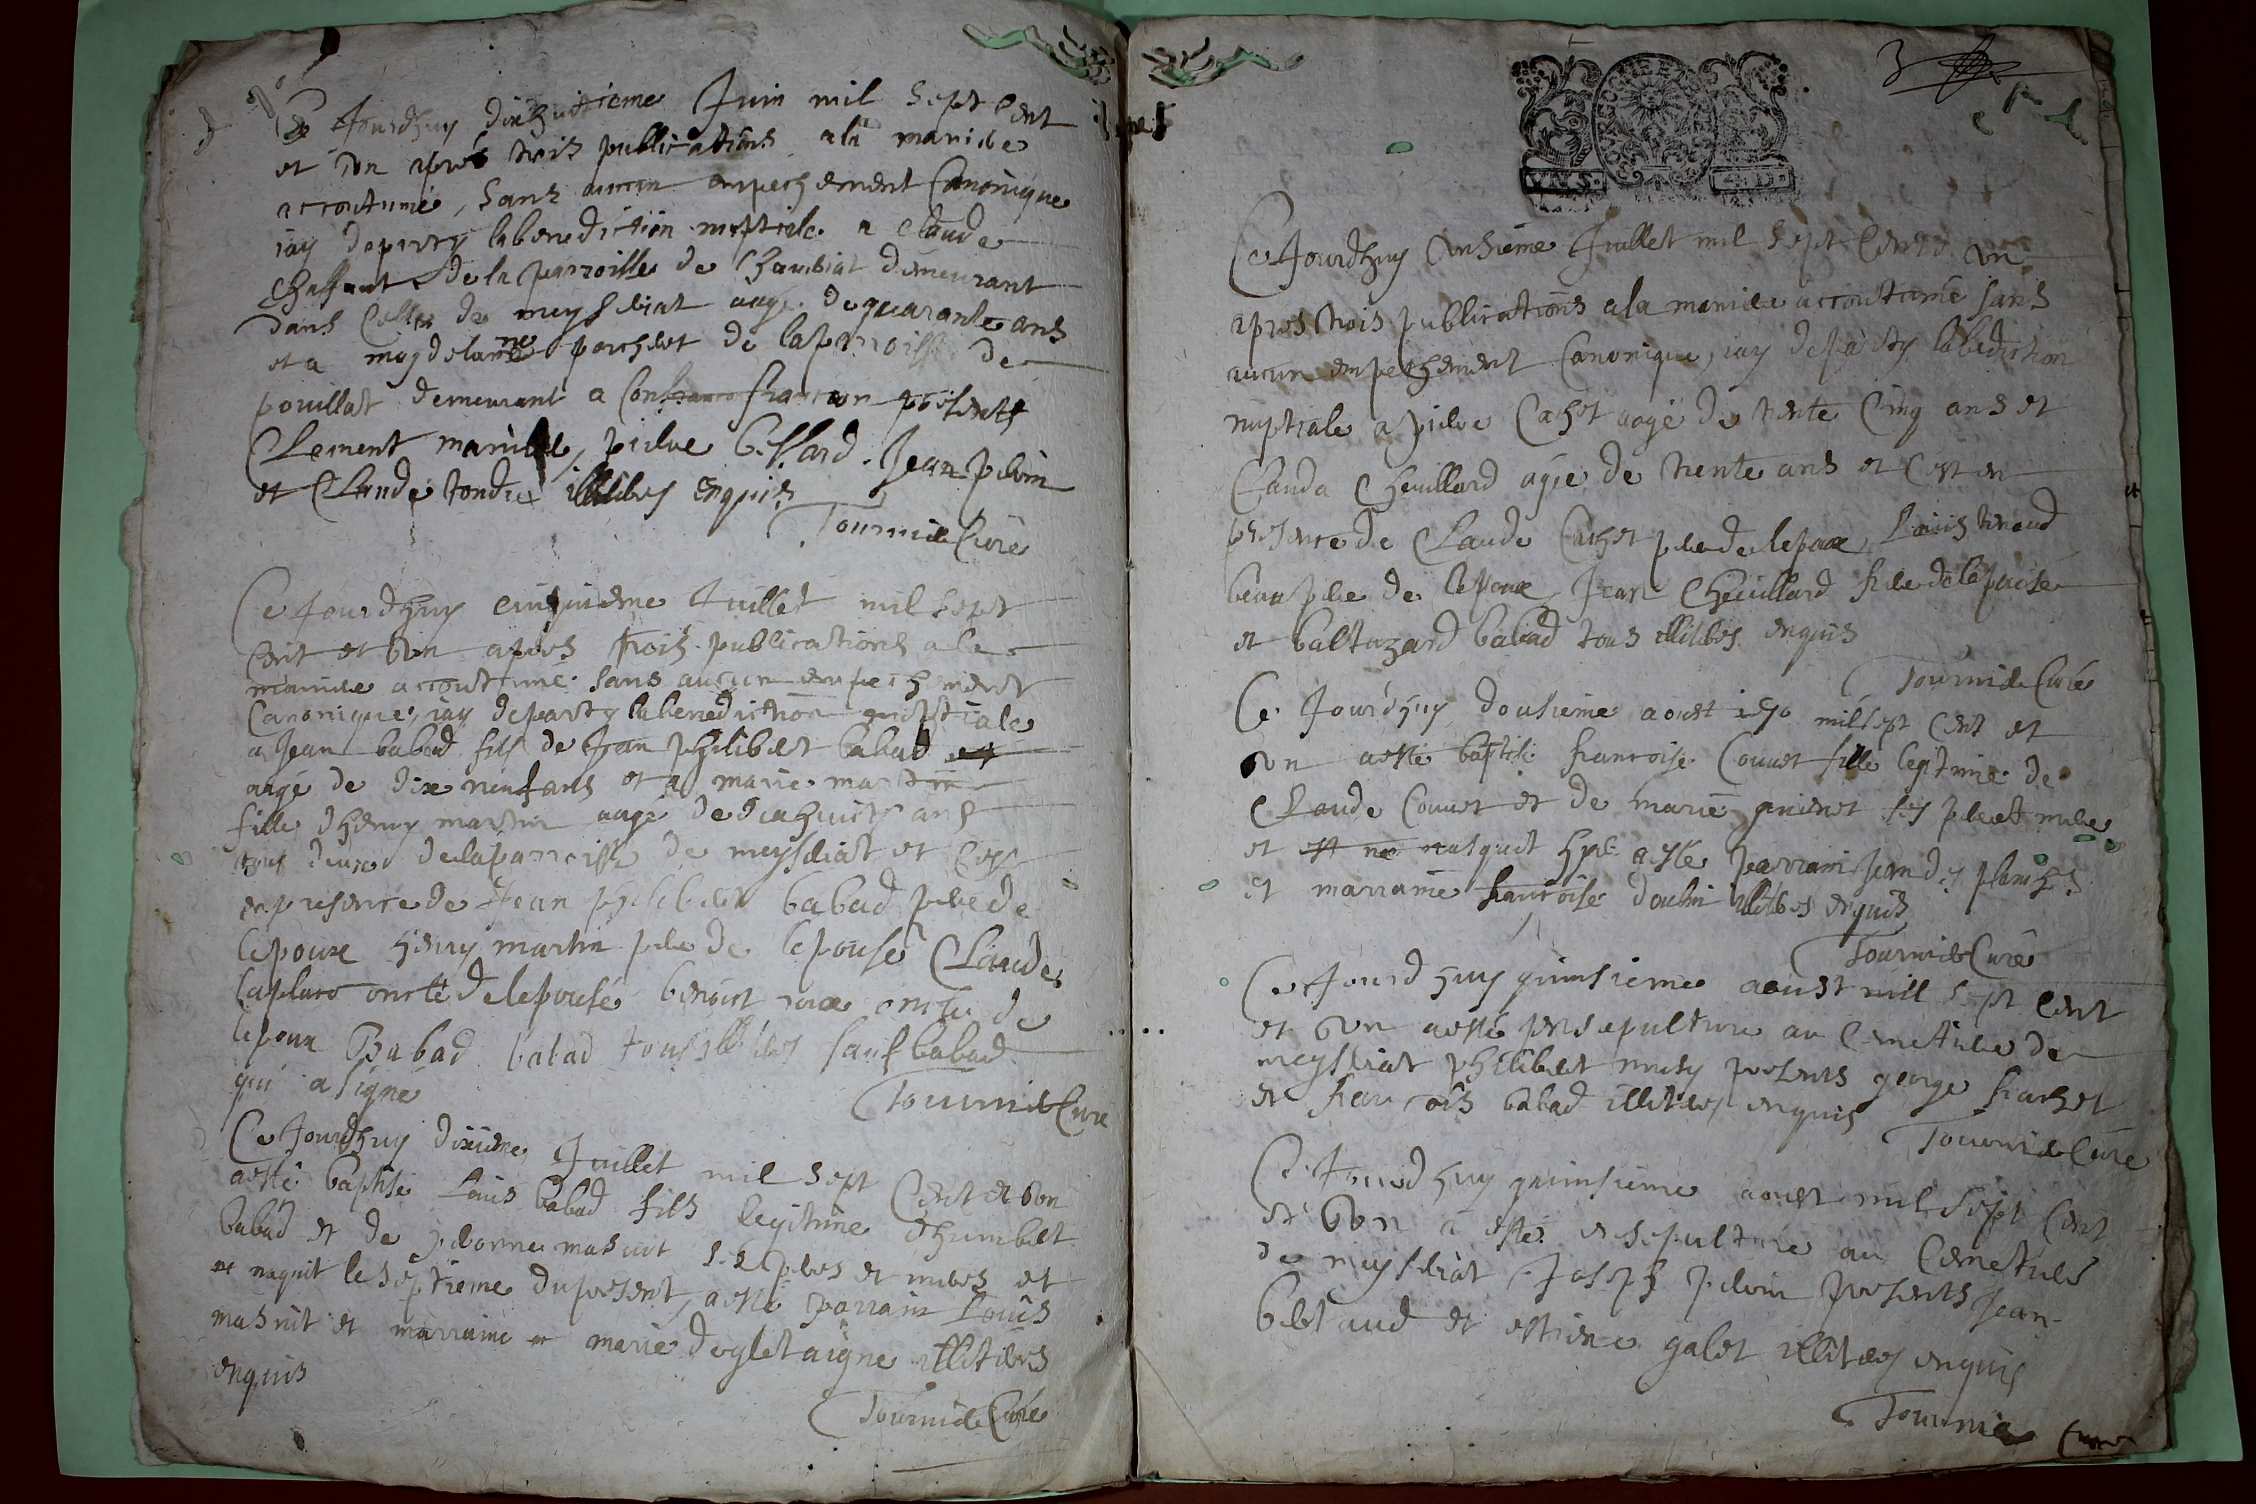 Ce Jourdhuy dixhuittieme Juin mil sept cent
et un apres trois publications a la maniere
accoutumé, sans aucun empechement Canonique
jay departy la benediction nuptiale a Claude
Chaffaut de la parroisse de Chambiat demeurant
dans Celle de meysseriat aagé de quarante ans
et a magdelaine porchert de la parroisse de
pouillat demeurant a Confrancon presents
Clement, pierre bessard, Jean perrin
et Claude tondu illiteres enquis
Tournier Curé
Ce Jourdhuy cinquieme Juillet mil sept
cent et un apres trois publications a la
maniere accoutumé sans aucun empechement
Canonique, jay departy la benediction nuptiale
a Jean babad fils de Jean philibert babad
aagé de dix neuf ans et a marie martin
fille dhenry martin aagé de dixhuict ans
tous deux de la parroisse de meysseriat et Cest
en presence de Jean philibert babad pere de
lepoux henry martin pere de lepouse Claude
laplace oncle de lepouse benoist oncle de
lepoux Babad babad tous illiteres sauf babad
qui a signé
Tournier Curé
Ce Jourdhuy dixieme Juillet mil sept Cent et un
a esté baptisé Louis babad fils legitime dhumbert
babad et de pieronne masuit ses peres et meres et
naquit le septieme du present, a esté parrain Louis
masuit et marraine marie degletaigne illiteres
enquis
Tournier Curé
3
UNS. 4. D.
Ce Jourdhuy onsieme Juillet mil sept Cents un
apres trois publications a la maniere accoutumé sans
aucun empechement Canonique, jay departy la bediction
nuptiale a pierre Cachet aagé de trente Cinq ans et
Clauda Cheuillard agée de trente ans et Cest en
presence de Claude Cachet pere de lepoux, Louis tenaud
beau pere de lepoux, Jean Cheuillard frere de lepouse
et baltazard babad tous illiteres enquis
Tournier Curé
Ce Jourdhuy dousieme aoust mil sept Cent et
un a esté baptisé francoise Couuet fille legitime de
Claude Couuet et de marie ses pere et mere
et nasquit hyer a esté parrain Jean des planches
et marraine francoise illiteres enquis
Tournier Curé
Ce Jourdhuy quinsieme aoust mill sept Cent
et un a esté en sepulture au Cimetiere de
meysseriat philibert presents george frachet
et francois babad illiteres enquis
Tournier Curé
Ce Jourdhuy quinsieme aoust mil sept Cent
et un a esté en sepulture au Cemetiere
de meysseriat Joseph perrin presents Jean
bertaud et estiene galet illiteres enquis
Tournier Curé